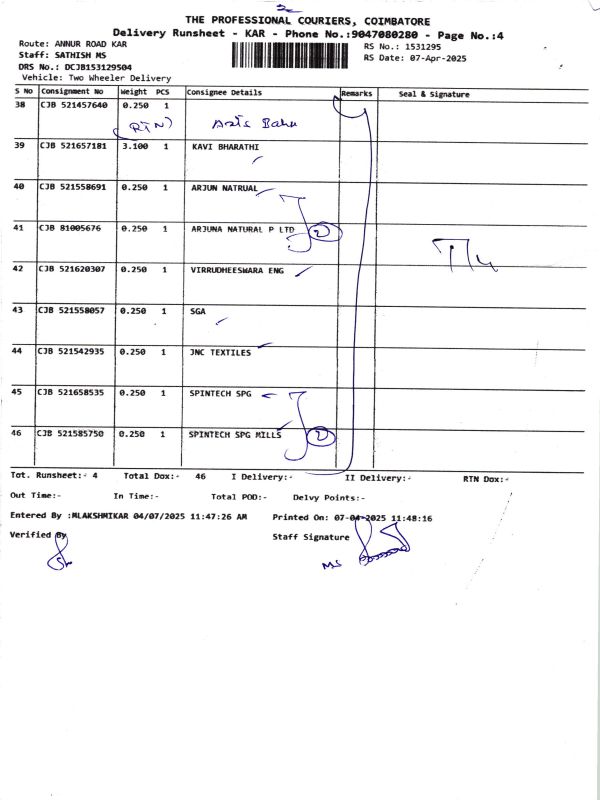 THE PROFESSIONAL COURIERS, COIMBATORE
Delivery Runsheet - KAR - Phone No.:9047080280 - Page No.:4
Route: ANNUR ROAD KAR
RS No.: 1531295
Staff: SATHISH MS
RS Date: 07-Apr-2025
DRS No.: DCJB153129504
Vehicle: Two Wheeler Delivery
S No Consignment No Weight PCS Consignee Details Remarks Seal & Signature
38 CJB 521457640 0.250 1
(RTN)
39 CJB 521657181 3.100 1 KAVI BHARATHI
40 CJB 521558691 0.250 1 ARJUN NATRUAL
41 CJB 81005676 0.250 1 ARJUNA NATURAL P LTD 2
42 CJB 521620307 0.250 1 VIRRUDHEESWARA ENG
43 CJB 521558057 0.250 1 SGA
44 CJB 521542935 0.250 1 JNC TEXTILES
45 CJB 521658535 0.250 1 SPINTECH SPG
46 CJB 521585750 0.250 1 SPINTECH SPG MILLS 2
Tot. Runsheet:- 4 Total Dox:- 46 I Delivery:- II Delivery:- RTN Dox:-
Out Time:- In Time:- Total POD:- Delvy Points:-
Entered By :MLAKSHMIKAR 04/07/2025 11:47:26 AM Printed On: 07-04-2025 11:48:16
Verified By Staff Signature
MS